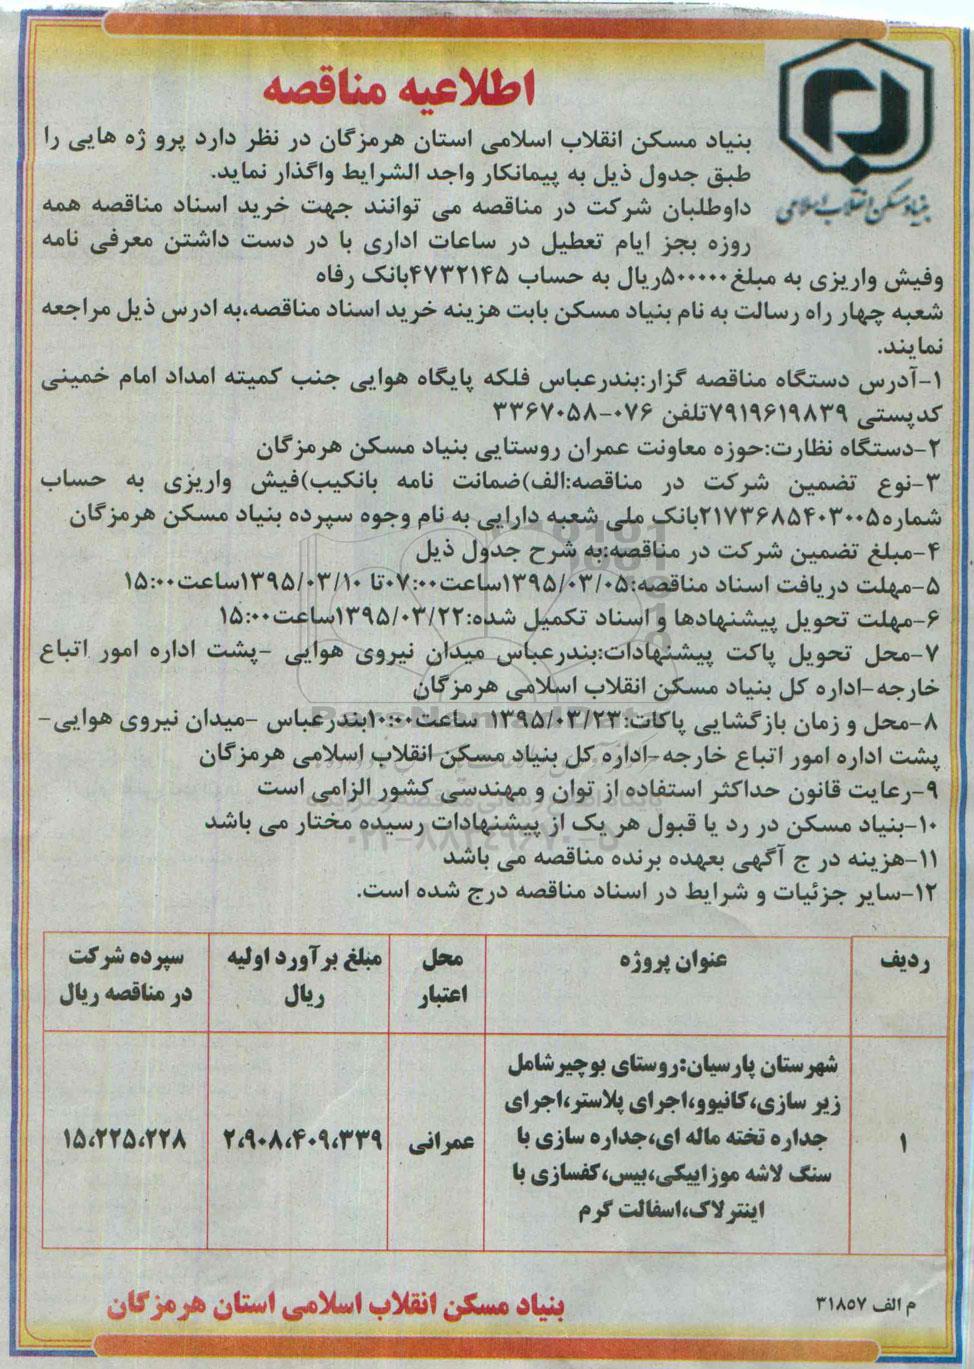 اطلاعیه مناقصه
بنیاد مسکن انقلاب اسلامی
بنیاد مسکن انقلاب اسلامی استان هرمزگان در نظر دارد پرو ژه هایی را
طبق جدول ذیل به پیمانکار واجد الشرایط واگذار نماید.
داوطلبان شرکت در مناقصه می توانند جهت خرید اسناد مناقصه همه
روزه بجز ایام تعطیل در ساعات اداری با در دست داشتن معرفی نامه
وفیش واریزی به مبلغ۵۰۰۰۰۰ریال به حساب ۴۷۳۲۱۴۵بانک رفاه
شعبه چهار راه رسالت به نام بنیاد مسکن بابت هزینه خرید اسناد مناقصه،به ادرس ذیل مراجعه
نمایند.
۱-آدرس دستگاه مناقصه گزار:بندرعباس فلکه پایگاه هوایی جنب کمیته امداد امام خمینی
کدپستی ۷۹۱۹۶۱۹۸۳۹تلفن ۰۷۶-۳۳۶۷۰۵۸
۲-دستگاه نظارت:حوزه معاونت عمران روستایی بنیاد مسکن هرمزگان
۳-نوع تضمین شرکت در مناقصه:الف)ضمانت نامه بانکیب)فیش واریزی به حساب
شماره۲۱۷۳۶۸۵۴۰۳۰۰۵بانک ملی شعبه دارایی به نام وجوه سپرده بنیاد مسکن هرمزگان
۴-مبلغ تضمین شرکت در مناقصه:به شرح جدول ذیل
۵-مهلت دریافت اسناد مناقصه:۱۳۹۵/۰۳/۰۵ساعت۰۷:۰۰تا ۱۳۹۵/۰۳/۱۰ساعت۱۵:۰۰
۶-مهلت تحویل پیشنهادها و اسناد تکمیل شده:۱۳۹۵/۰۳/۲۲ساعت۱۵:۰۰
۷-محل تحویل پاکت پیشنهادات:بندرعباس میدان نیروی هوایی -پشت اداره امور اتباع
خارجه-اداره کل بنیاد مسکن انقلاب اسلامی هرمزگان
۸-محل و زمان بازگشایی پاکات:۱۳۹۵/۰۳/۲۳ ساعت۱۰:۰۰بندرعباس -میدان نیروی هوایی-
پشت اداره امور اتباع خارجه-اداره کل بنیاد مسکن انقلاب اسلامی هرمزگان
۹-رعایت قانون حداکثر استفاده از توان و مهندسی کشور الزامی است
۱۰-بنیاد مسکن در رد یا قبول هر یک از پیشنهادات رسیده مختار می باشد
۱۱-هزینه در ج آگهی بعهده برنده مناقصه می باشد
۱۲-سایر جزئیات و شرایط در اسناد مناقصه درج شده است.
ردیف عنوان پروژه محل اعتبار مبلغ برآورد اولیه ریال سپرده شرکت در مناقصه ریال
۱ شهرستان پارسیان:روستای بوچیرشامل
زیر سازی،کانیوو،اجرای پلاستر،اجرای
جداره تخته ماله ای،جداره سازی با
سنگ لاشه موزاییکی،بیس،کفسازی با
اینترلاک،اسفالت گرم
عمرانی ۲،۹۰۸،۴۰۹،۳۳۹ ۱۵،۲۲۵،۲۲۸
م الف ۳۱۸۵۷
بنیاد مسکن انقلاب اسلامی استان هرمزگان